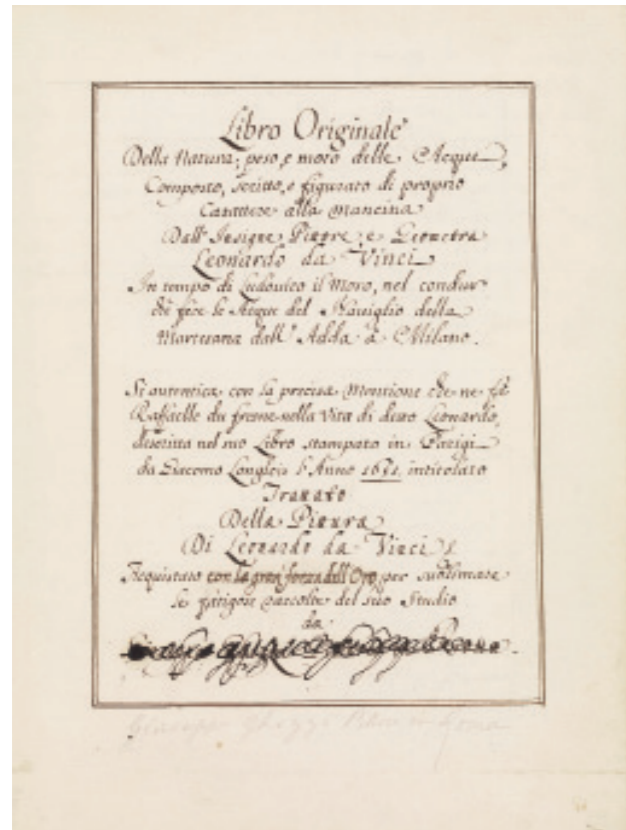 Libro Originale
Della Natura, peso, e moto delle Acque,
Composto, scritto, e figurato di proprio
Carattere alla mancina
Dall' Insigne Pittore, e Geometra
Leonardo da Vinci
In tempo di Ludovico il Moro, nel condur
che fece le Acque del Naviglio della
Martesana dall' Adda à Milano.
Si autentica con la precisa Menzione che ne fà
Raffaelle du fresne nella Vita di detto Leonardo,
descritta nel suo Libro stampato in Parigi
da Giacomo Langlois l'Anno 1651, intitolato
Trattato
Della Pittura
Di Leonardo da Vinci
Acquistato con la gran forza dell' Oro per sublimare
le raccolte del suo Studio
da
Giuseppe Ghezzi Roma